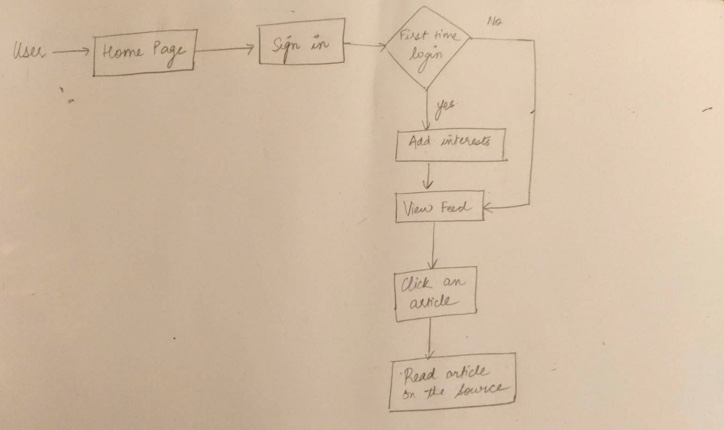 User
Home Page
Sign in
First time
login
No
yes
Add interests
View Feed
Click an
article
Read article
on the source